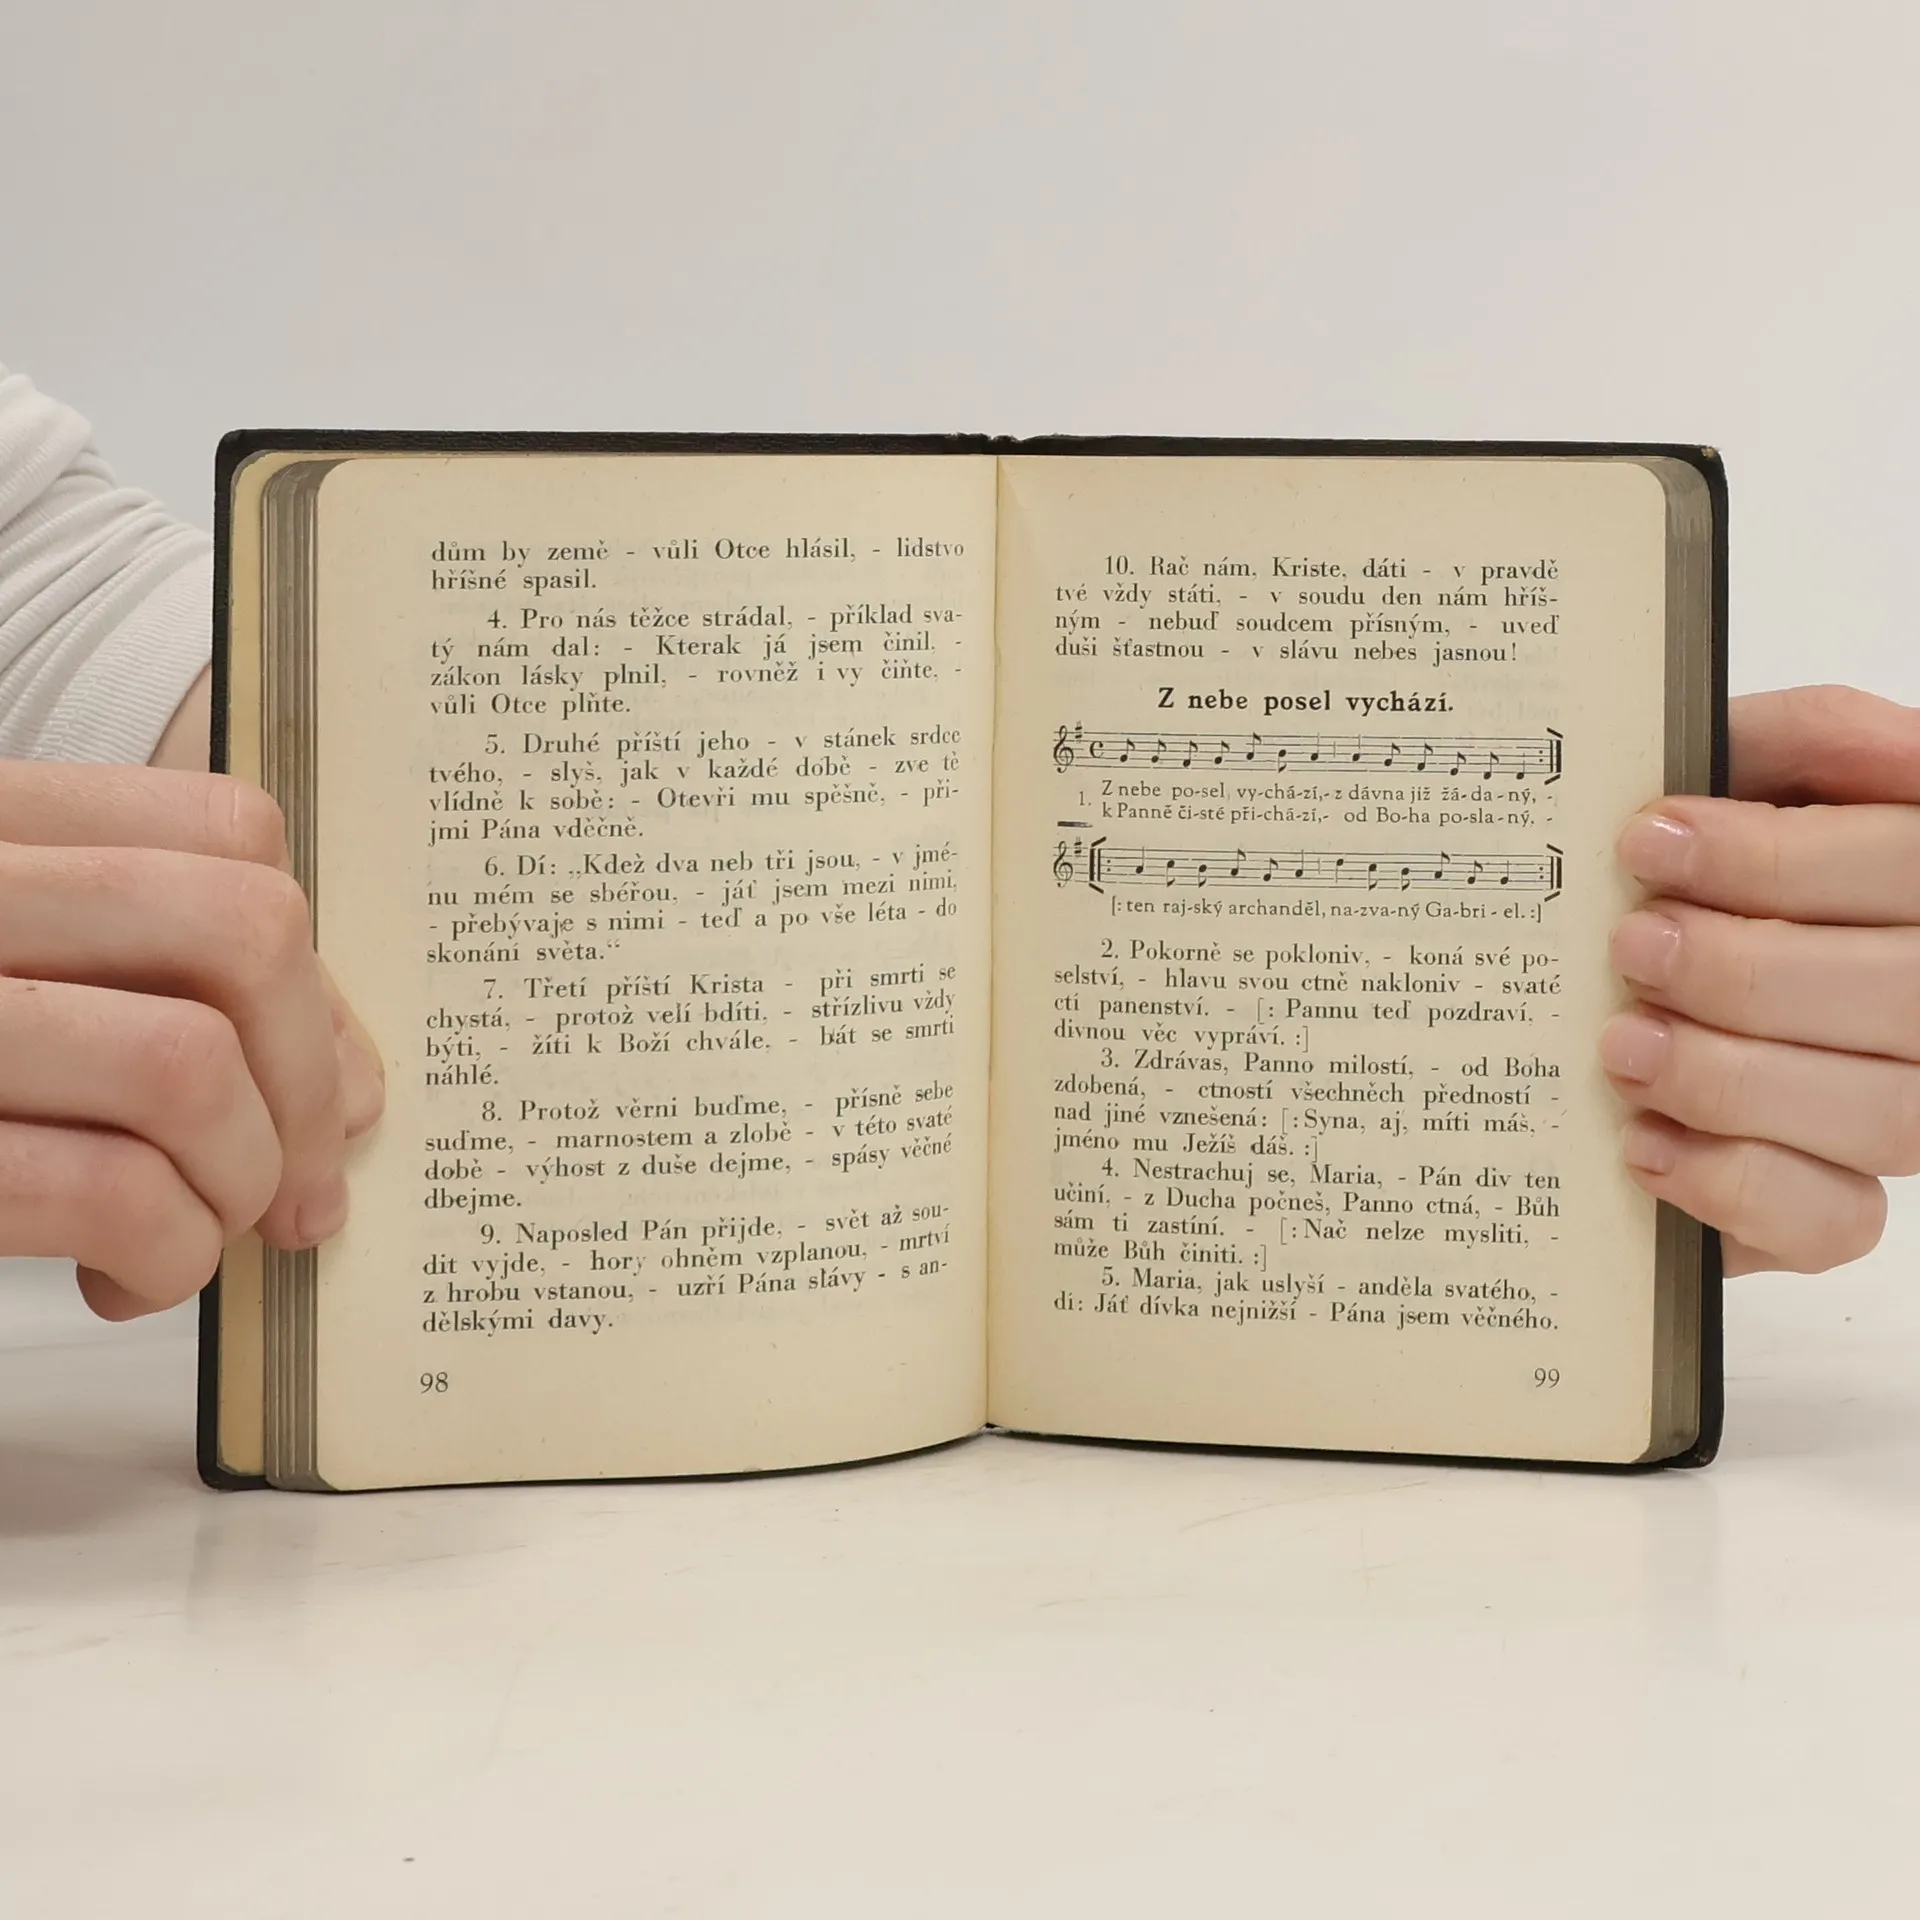 dům by země - vůli Otce hlásil, - lidstvo
hříšné spasil.
4. Pro nás těžce strádal, - příklad sva-
tý nám dal: - Kterak já jsem činil, -
zákon lásky plnil, - rovněž i vy čiňte, -
vůli Otce plňte.
5. Druhé příští jeho - v stánek srdce
tvého, - slyš, jak v každé době - zve tě
vlídně k sobě: - Otevři mu spěšně, - při-
jmi Pána vděčně.
6. Dí: „Kdež dva neb tři jsou, - v jmé-
nu mém se sbéřou, - jáť jsem mezi nimi,
- přebývaje s nimi - teď a po vše léta - do
skonání světa.“
7. Třetí příští Krista - při smrti se
chystá, - protož velí bdíti, - střízlivu vždy
býti, - žíti k Boží chvále, - bát se smrti
náhlé.
8. Protož věrni buďme, - přísně sebe
suďme, - marnostem a zlobě - v této svaté
době - výhost z duše dejme, - spásy věčné
dbejme.
9. Naposled Pán přijde, - svět až sou-
dit vyjde, - hory ohněm vzplanou, - mrtví
z hrobu vstanou, - uzří Pána slávy - s an-
dělskými davy.
98
10. Rač nám, Kriste, dáti - v pravdě
tvé vždy státi, - v soudu den nám hříš-
ným - nebuď soudcem přísným, - uveď
duši šťastnou - v slávu nebes jasnou!
Z nebe posel vychází.
1. Z nebe po-sel vy-chá-zí,- z dávna již žá-da-ný, -
k Panně či-sté při-chá-zí,- od Bo-ha po-sla-ný, -
[: ten raj-ský archanděl, na-zva-ný Ga-bri-el. :]
2. Pokorně se pokloniv, - koná své po-
selství, - hlavu svou ctně nakloniv - svaté
ctí panenství. - [: Pannu teď pozdraví, -
divnou věc vypráví. :]
3. Zdrávas, Panno milostí, - od Boha
zdobená, - ctností všechněch předností -
nad jiné vznešená: [: Syna, aj, míti máš, -
jméno mu Ježíš dáš. :]
4. Nestrachuj se, Maria, - Pán div ten
učiní, - z Ducha počneš, Panno ctná, - Bůh
sám ti zastíní. - [: Nač nelze mysliti, -
může Bůh činiti. :]
5. Maria, jak uslyší - anděla svatého, -
dí: Jáť dívka nejnižší - Pána jsem věčného.
99